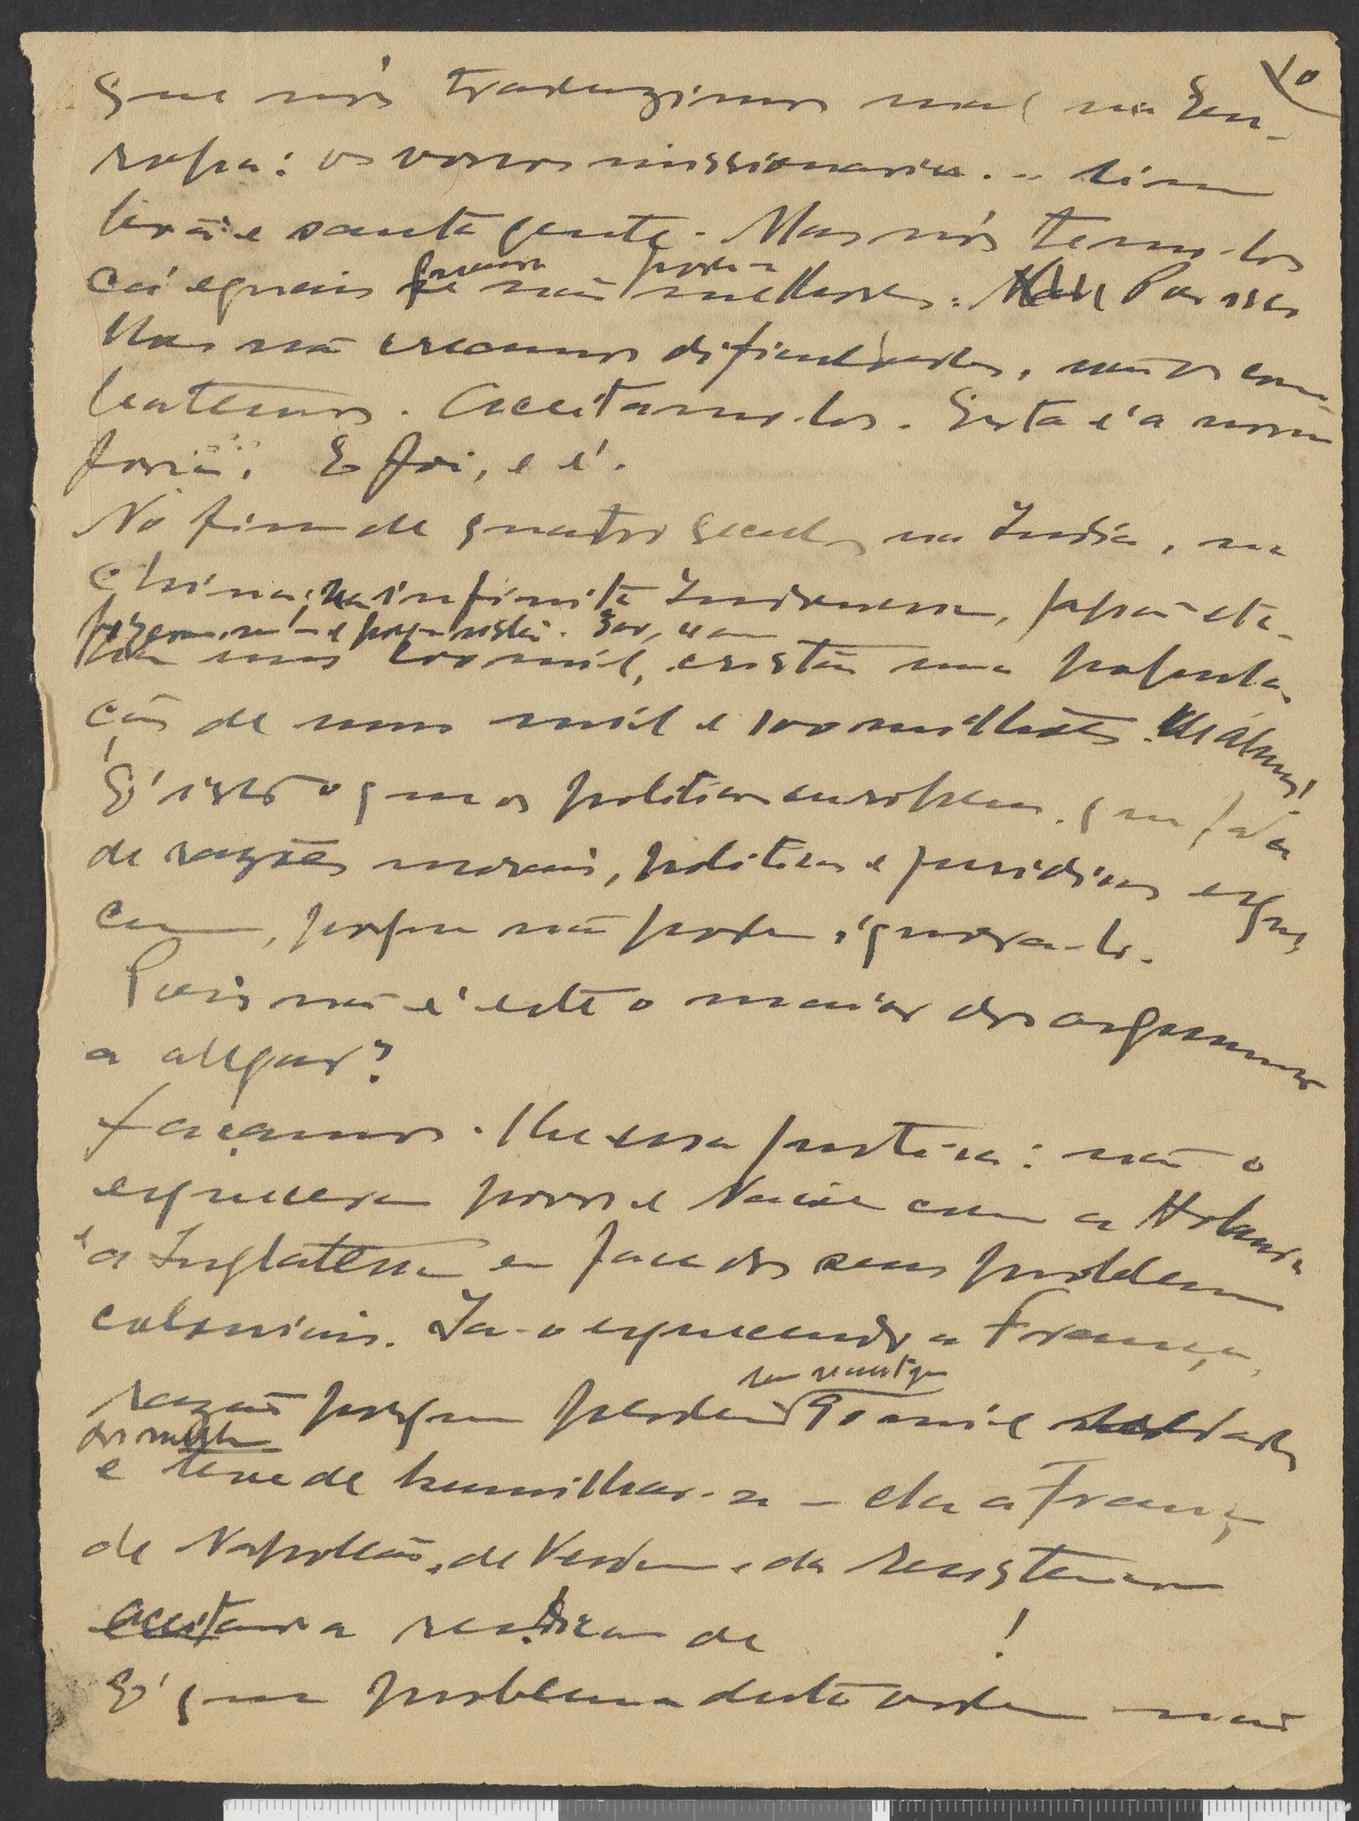 10
que nós traduzimos mal na Eu-
ropa: os vossos missionarios...
e santa gente. Mas nós temo-los
cá eguais se não melhores. Por isso
Mas não creamos dificuldades, não os com-
batemos. Aceitamo-los. Esta é a nossa
força. E foi, e é.
No fim de quatro seculos na India, na
China, na infinita Indonesia, Japão etc.
uns 100 mil, cristãos numa popula-
ção de uns mil e 100 milhões.
É isto o que os politicos europeus, que falam
de razões morais, politicas e juridicas esque-
cem, porque não podem ignora-lo.
Pois não é este o maior dos argumentos
a alegar?
Façamos-lhe essa justiça: não o
esqueceram povos e Nações como a Holanda
e a Inglaterra em face dos seus problemas
coloniais. Ia-o esquecendo a França,
razão porque perdeu 90 mil soldados
e teve de humilhar-se – ela a França
de Napoleão, de Verdun e da resistencia
aceitando a de !
É que problema desta ordem não